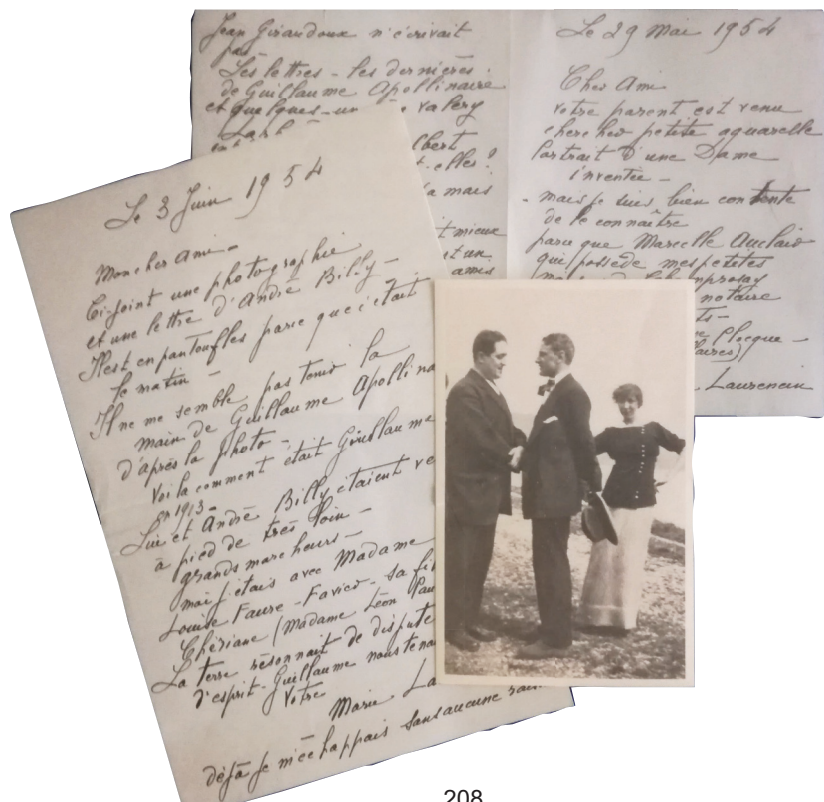 Jean Giraudoux n'écrivait
pas
Les lettres - les dernières
de Guillaume Apollinaire
et quelques-un Valéry
Larb
lbert
t-elles?
a mais
t mieux
et un
amis
Le 29 Mai 1954
Cher Ami
votre parent est venu
chercher petite aquarelle
Portrait d'une Dame
inventée -
- mais je suis bien contente
de le connaître
parce que Marcelle Auclair
qui possède mes petites
notaire
ts -
Plocque -
aires)
Laurencin
Le 3 Juin 1954
Mon cher Ami -
Ci-joint une photographie
et une lettre d'André Billy -
Il est en pantoufles parce que c'était
le matin -
Il ne me semble pas tenir la
main de Guillaume Apollina
d'après la photo -
Voilà comment était Guillaume
en 1913 -
Lui et André Billy étaient ve
à pied de très loin -
grands marcheurs -
moi j'étais avec Madame
Louise Faure-Favier - sa fi
Chériane (Madame Léon Pau
La terre résonnait de dispute
d'esprit - Guillaume nous tena
Votre
Marie La
déjà je m'échappais sans aucune rais
208